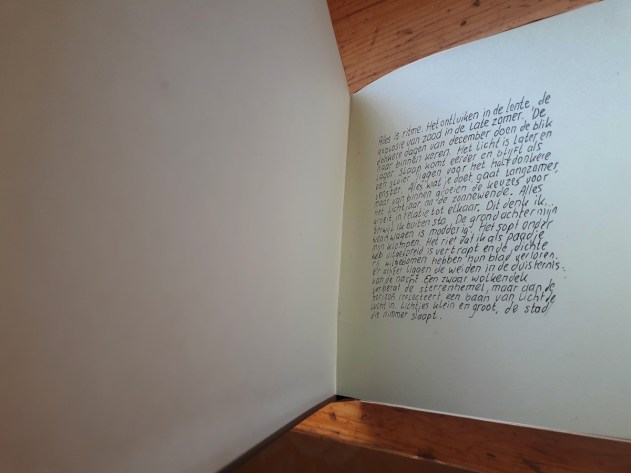 Alles is ritme. Het ontluiken in de lente, de
explosie van zaad in de late zomer. De
donkere dagen van december doen de blik
naar binnen keren. Het licht is later en
lager. Slaap komt eerder en blijft als
een sluier liggen voor het halfdonkere
venster. Alles wat je doet gaat langzamer,
maar van binnen groeien de keuzes voor
het lichtjaar na de zonnewende. Alles
groeit in relatie tot elkaar. Dit denk ik
terwijl ik buiten sta. De grond achter mijn
woonwagen is modderig. Het sopt onder
mijn klompen. Het riet dat ik als paadje
heb uitgespreid is vertrapt en de dichte
rij wilgebomen hebben hun blad verloren.
er achter liggen de weiden in de duisternis
van de nacht. Een zwaar wolkendek
verbergt de sterrenhemel, maar aan de
horizon reflecteert een baan van licht de
lucht in. Lichtjes klein en groot, de stad
die nimmer slaapt.